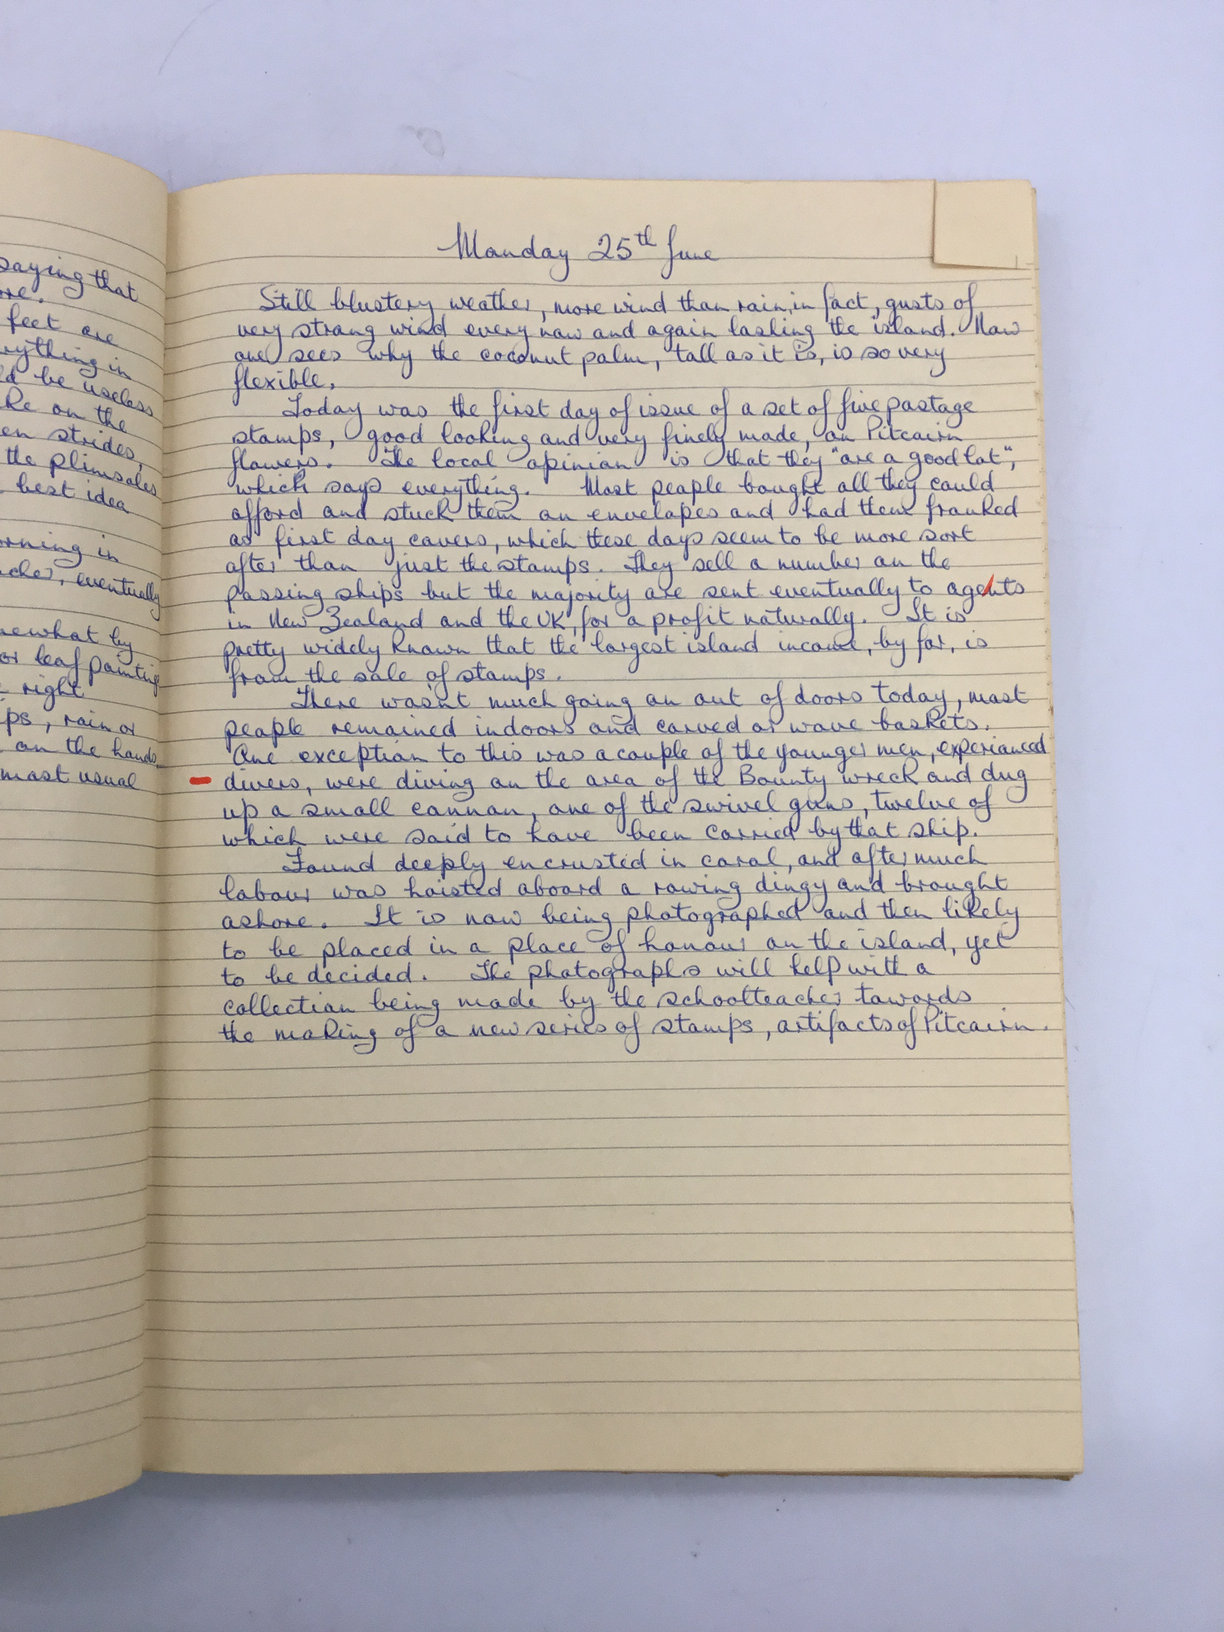 saying that
ore.
feet are
rything in
ld be useless
ke on the
en strides,
the plimsoles
best idea
orning in
acher, eventually
newhat by
or leaf painting
right
ps, rain or
on the hands
most usual
Monday 25th June
Still blustery weather, more wind than rain, in fact, gusts of
very strong wind every now and again lashing the island. Now
one sees why the coconut palm, tall as it is, is so very
flexible.
Today was the first day of issue of a set of five postage
stamps, good looking and very finely made, on Pitcairn
flowers. The local opinion is that they "are a good lot",
which says everything. Most people bought all they could
afford and stuck them on envelopes and had them franked
as first day covers, which these days seem to be more sort
after than just the stamps. They sell a number on the
passing ships but the majority are sent eventually to agents
in New Zealand and the UK, for a profit naturally. It is
pretty widely known that the largest island income, by far, is
from the sale of stamps.
There wasn't much going on out of doors today, most
people remained indoors and carved or wove baskets.
One exception to this was a couple of the younger men, experianced
divers, were diving on the area of the Bounty wreck and dug
up a small cannon, one of the swivel guns, twelve of
which were said to have been carried by that ship.
Found deeply encrusted in coral, and after much
labour was hoisted aboard a rowing dingy and brought
ashore. It is now being photographed and then likely
to be placed in a place of honour on the island, yet
to be decided. The photographs will help with a
collection being made by the schoolteacher towards
the making of a new series of stamps, artifacts of Pitcairn.